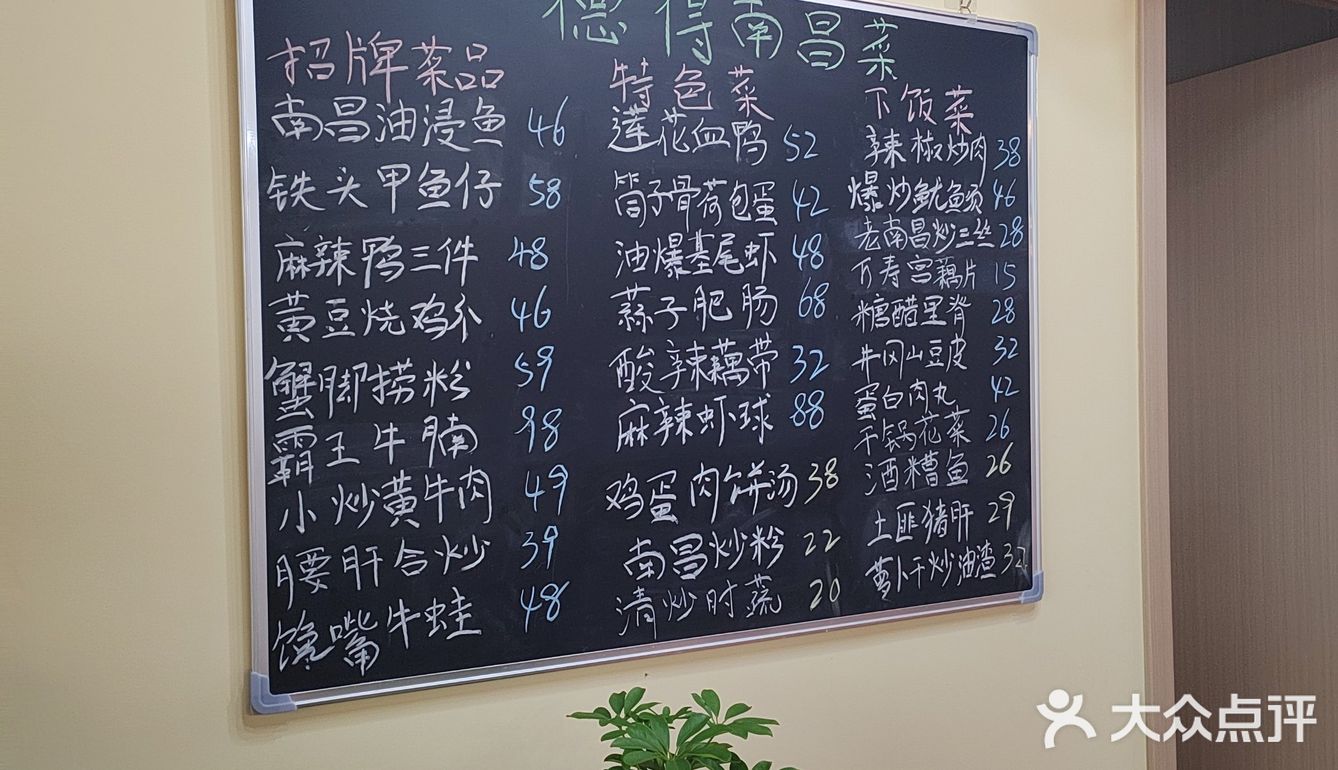 德得南昌菜
招牌菜品
南昌油浸鱼 46
铁头甲鱼仔 58
麻辣鸭三件 48
黄豆烧鸡爪 46
蟹脚捞粉 59
霸王牛腩 98
小炒黄牛肉 49
腰肝合炒 39
馋嘴牛蛙 48
特色菜
莲花血鸭 52
筒子骨荷包蛋 42
油爆基尾虾 48
蒜子肥肠 68
酸辣藕带 32
麻辣虾球 88
鸡蛋肉饼汤 38
南昌炒粉 22
清炒时蔬 20
下饭菜
辣椒炒肉 38
爆炒鱿鱼须 46
老南昌炒三丝 28
万寿宫藕片 15
糖醋里脊 28
井冈山豆皮 32
蛋白肉丸 42
干锅花菜 26
酒糟鱼 26
土匪猪肝 29
萝卜干炒油渣 32
大众点评